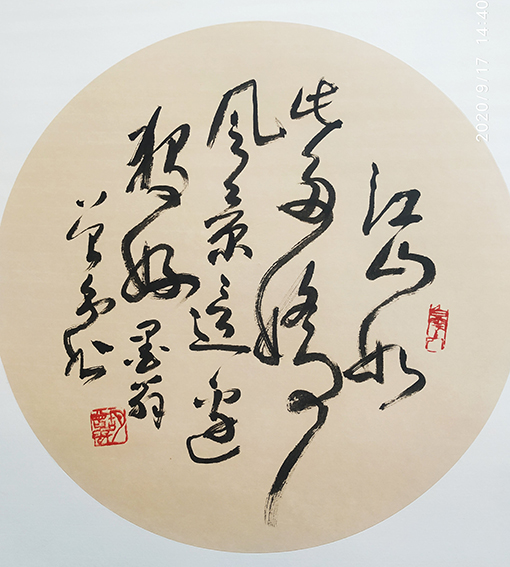 江山如
此多嬌
风景這邊
独好 墨翁
曾
2020/9/17 14:40